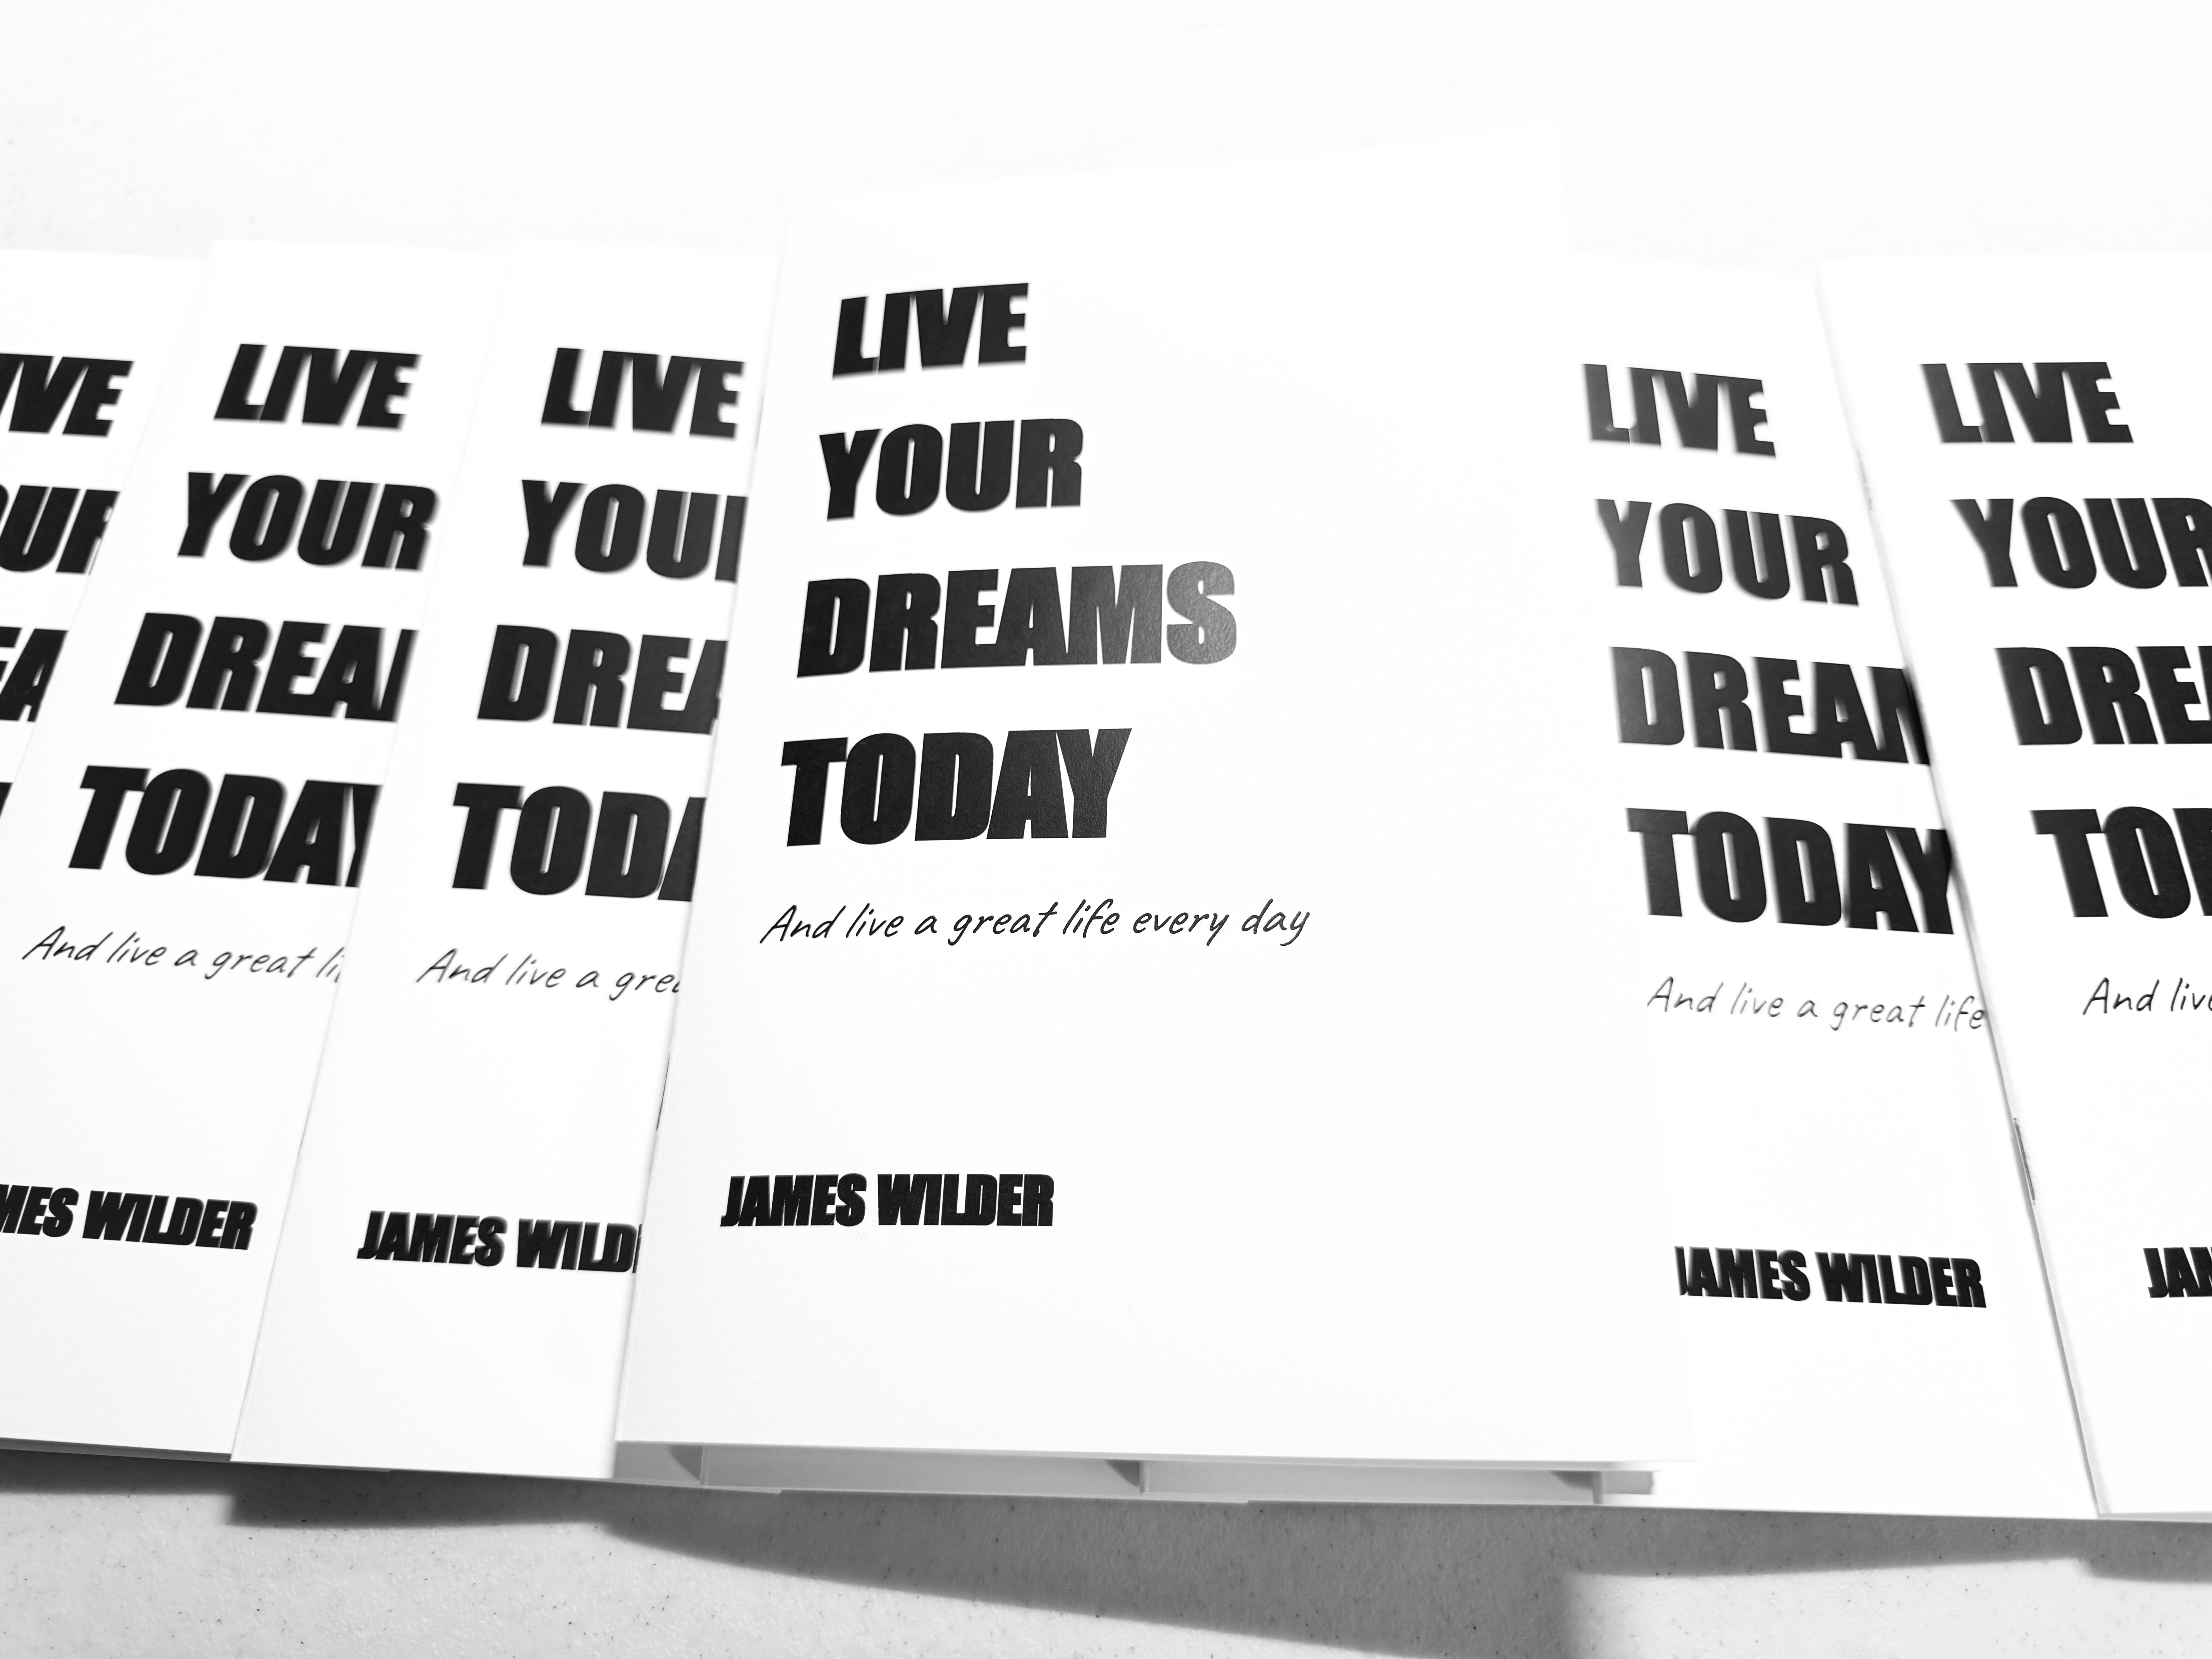 LIVE
YOUR
DREAMS
TODAY
And live a great life every day
JAMES WILDER
IVE
OUR
EA
MES WILDER
LIVE
YOUR
DREA
TODAY
And live a great li
JAMES WILD
LIVE
YOU
DREA
TODA
And live a grea
LIVE
YOUR
DREAM
TODAY
And live a great life
JAMES WILDER
LIVE
YOUR
DREA
TO
And live
JAM